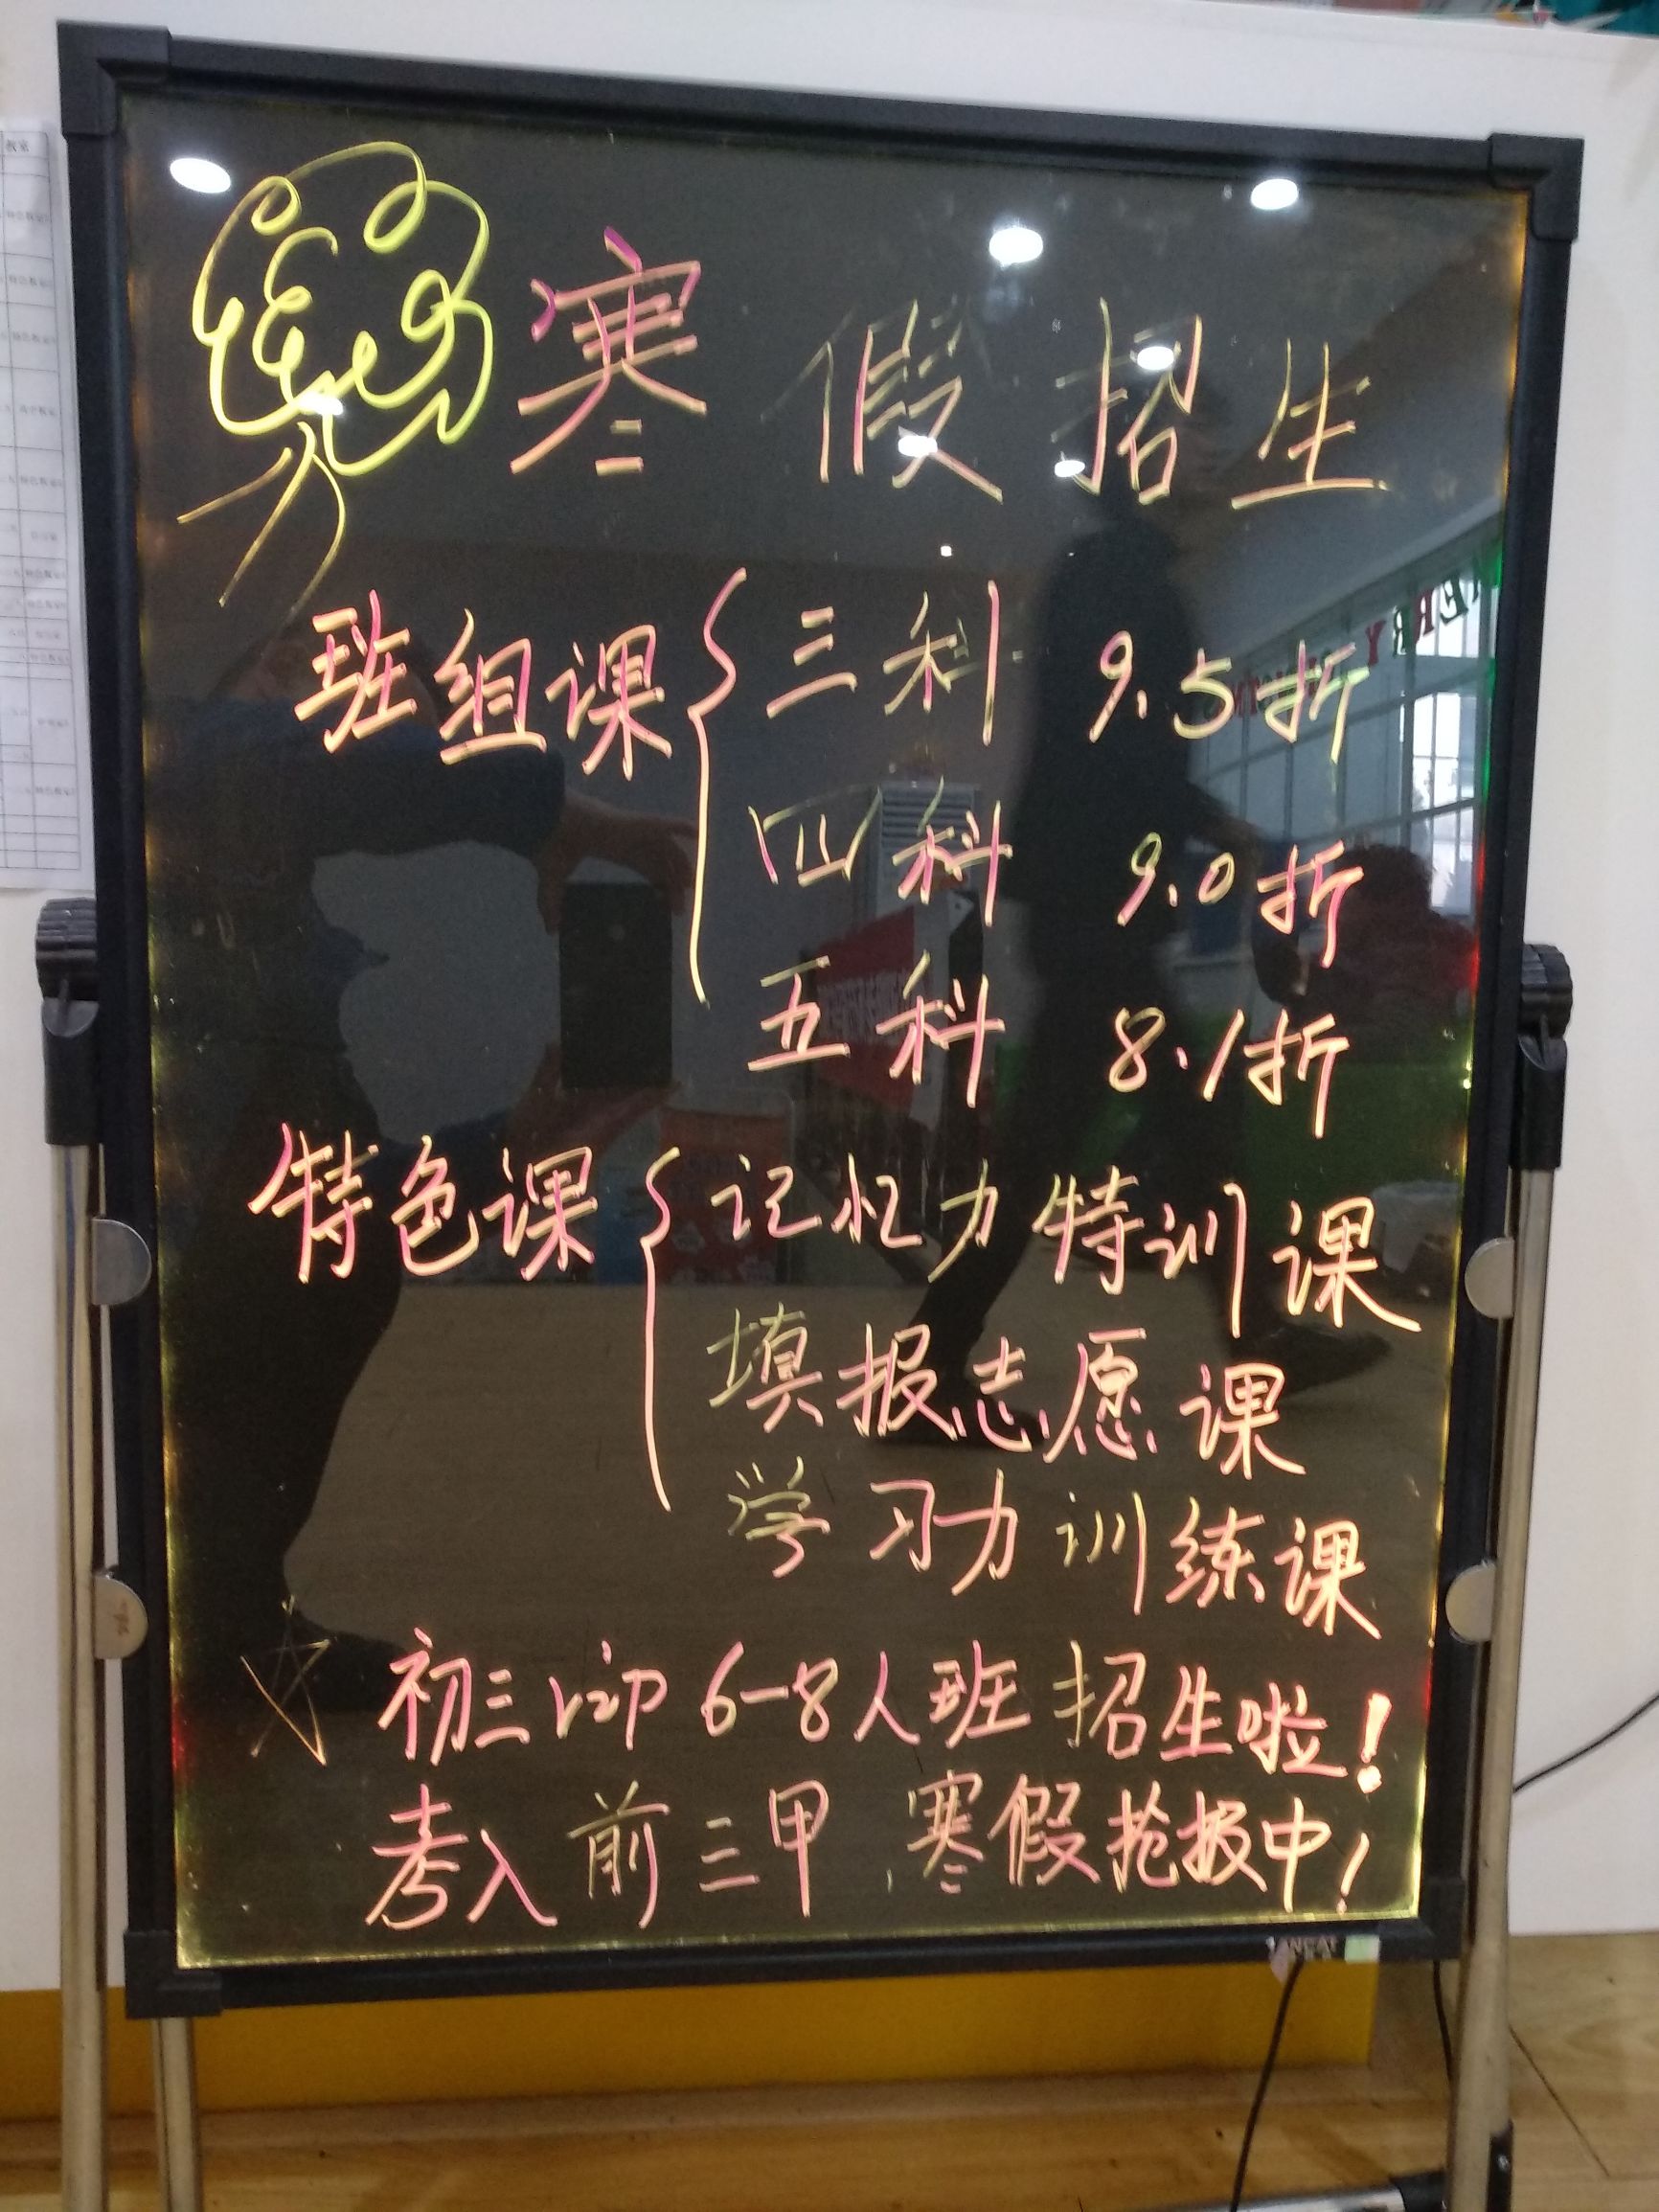 寒假招生
班组课 三科 9.5折
四科 9.0折
五科 8.1折
特色课 记忆力特训课
填报志愿课
学习力训练课
初三 6-8人班招生啦!
考入前三甲,寒假抢报中!
教室